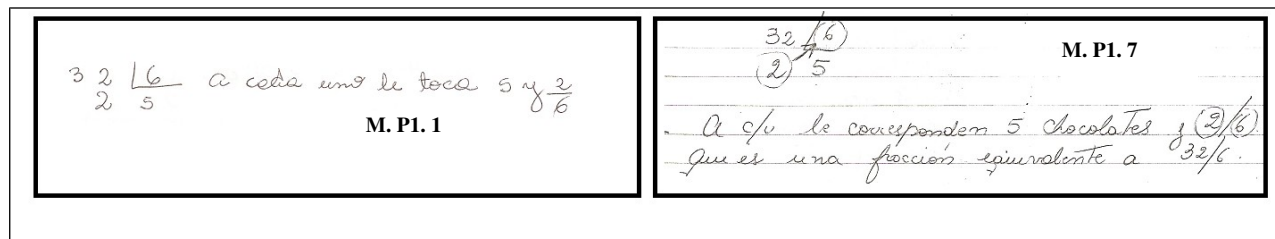 3 2 6 a cada uno le toca 5 y 2/6
2 5
M. P1. 1
32 / 6
2 5
M. P1. 7
. A c/u le corresponden 5 chocolates y 2/6
que es una fracción equivalente a 32/6.